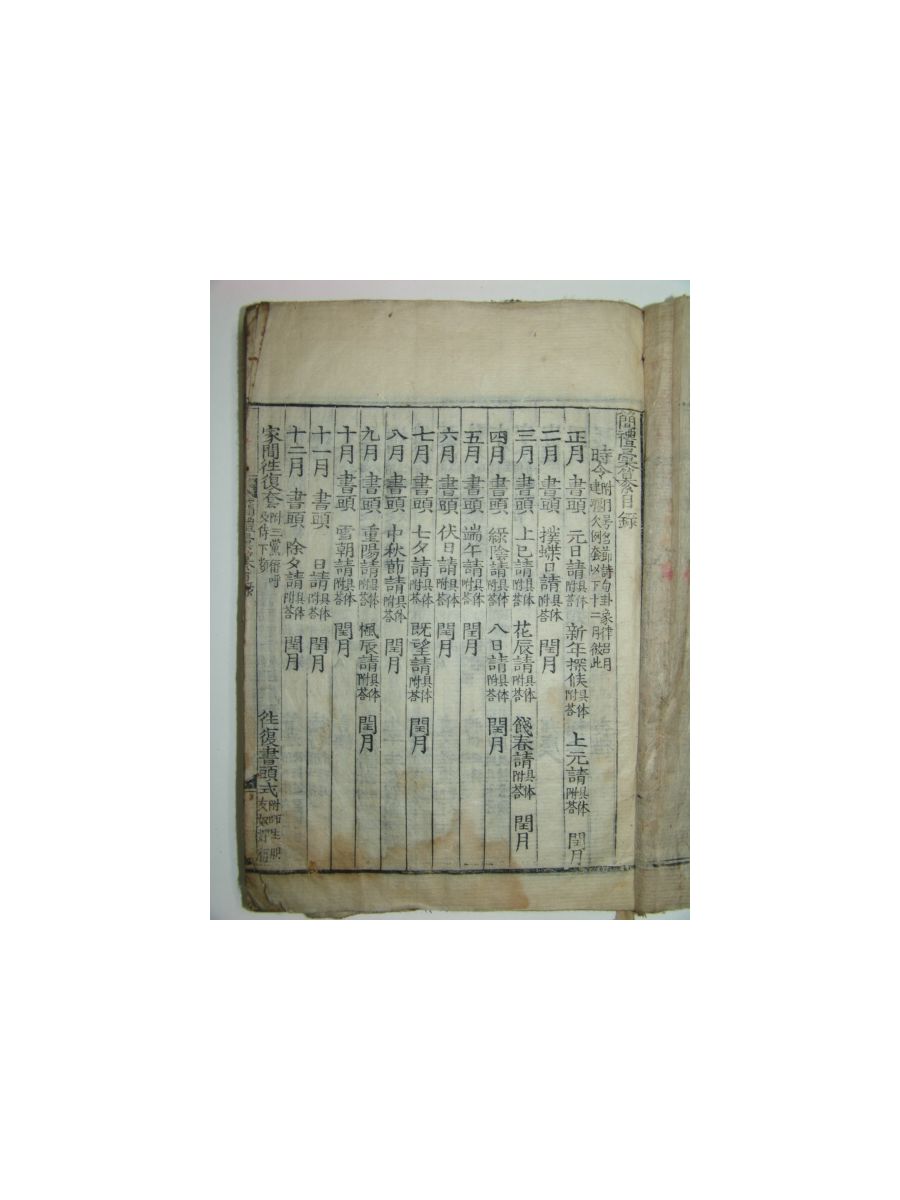 簡禮彙纂目錄
時令 附月号名節詩句卦象律呂月建 例套以下十二月做此
正月 書頭 元日請 具体附答 新年探候 具体附答 上元請 具体附答 閏月
二月 書頭 撲蝶日請 具体附答 閏月
三月 書頭 上巳請 具体附答 花辰請 具体附答 餞春請 具体附答 閏月
四月 書頭 綠陰請 具体附答 八日請 具体附答 閏月
五月 書頭 端午請 具体附答 閏月
六月 書頭 伏日請 具体附答 閏月
七月 書頭 七夕請 具体附答 既望請 具体附答 閏月
八月 書頭 中秋節請 具体附答 閏月
九月 書頭 重陽請 具体附答 楓辰請 具体附答 閏月
十月 書頭 雪朝請 具体附答 閏月
十一月 書頭 日請 具体附答 閏月
十二月 書頭 除夕請 具体附答 閏月
家間往復套 附三黨 往復書頭式 附師生